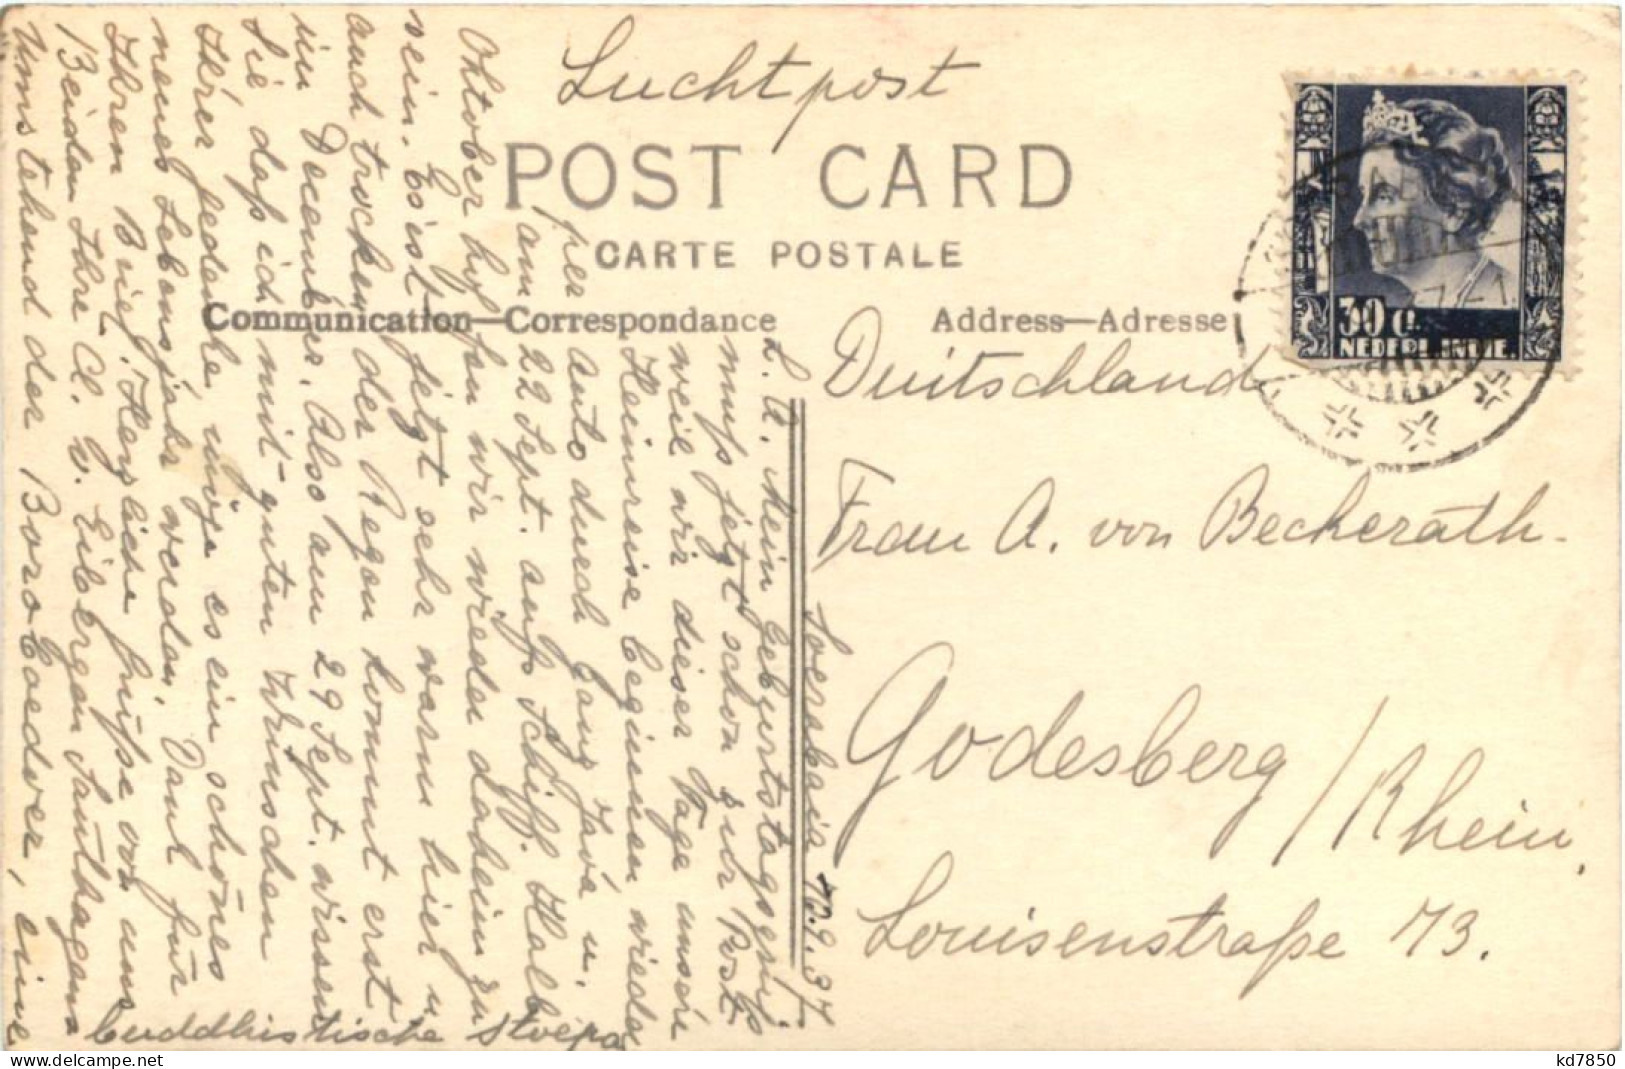 Luchtpost
POST CARD
CARTE POSTALE
Communication—Correspondance
Address—Adresse
30 c.
NEDERL. INDIE.
Duitschland
Frau A. von Beckerath
Godesberg / Rhein,
Louisenstraße 73.
Soerabaia 13.9.37
L. A. Mein Geburtstagsgruß
muß jetzt schon zur Post
weil wir dieser Tage unsere
Heimreise beginnen wieder
per Auto durch ganz Java u.
am 22 Sept. aufs Schiff. Halb
Oktober hoffen wir wieder daheim zu
sein. Es ist jetzt sehr warm hier u
auch trocken der Regen kommt erst
im December. Also am 29 Sept. wissen
Sie daß ich mit guten Wünschen
Ihrer gedenke möge es ein schönes
neues Lebensjahr werden. Dank für
Ihren Brief. Herzliche Grüße von uns
Beiden Ihre Cl. v. Eilbergen Santhagens
Umstehend der Boroboedoer, eine
buddhistische Stoepa
kd7850